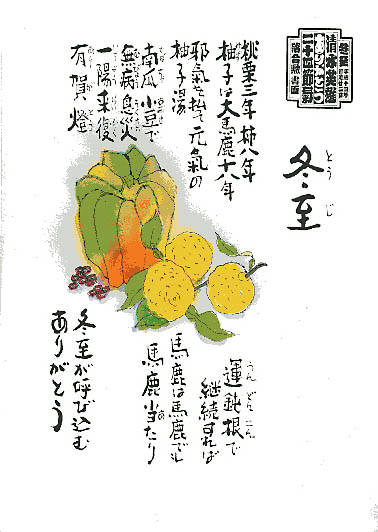 冬至
とうじ
桃栗三年柿八年
柚子は大馬鹿十八年
邪気を払て元気の
柚子湯
南瓜小豆で
無病息災
一陽来復
有賀燈
運鈍根で
うんどんこん
継続すれば
馬鹿は馬鹿でも
馬鹿当たり
冬至が呼び込む
ありがとう
二十四節気
落合勲書画